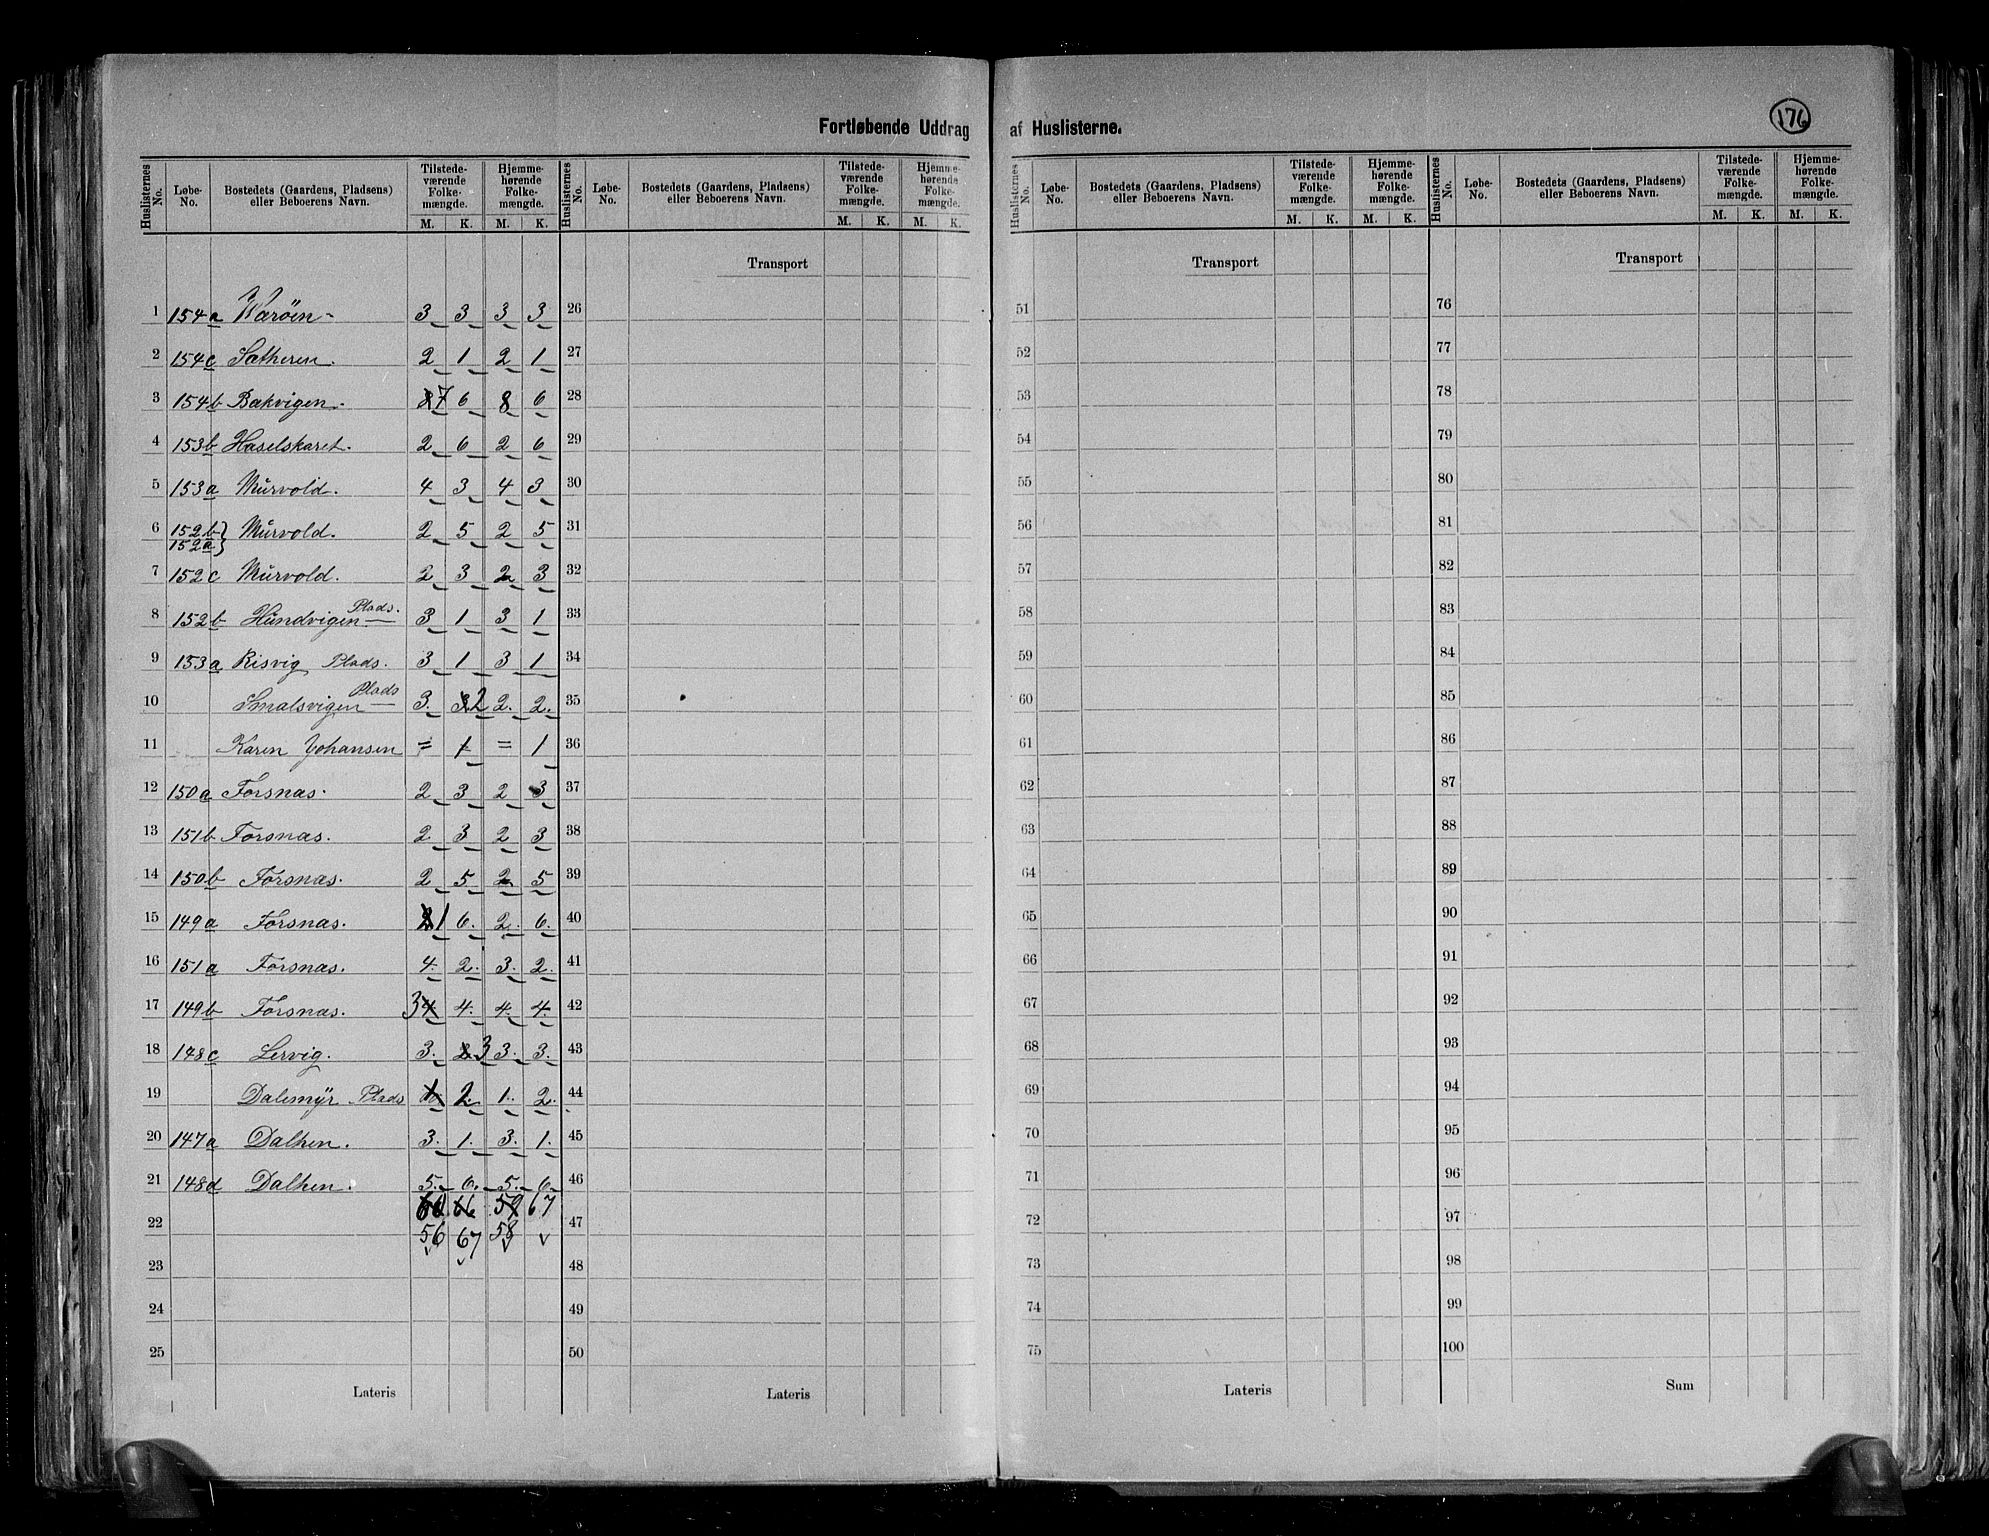 Fortløbende Uddrag af Huslisterne.
176
Huslisternes No. | Løbe-No. | Bostedets (Gaardens, Pladsens) eller Beboerens Navn. | Tilstedeværende Folkemængde. M. K. | Hjemmehørende Folkemængde. M. K.
Huslisternes No. | Løbe-No. | Bostedets (Gaardens, Pladsens) eller Beboerens Navn. | Tilstedeværende Folkemængde. M. K. | Hjemmehørende Folkemængde. M. K.
Huslisternes No. | Løbe-No. | Bostedets (Gaardens, Pladsens) eller Beboerens Navn. | Tilstedeværende Folkemængde. M. K. | Hjemmehørende Folkemængde. M. K.
Huslisternes No. | Løbe-No. | Bostedets (Gaardens, Pladsens) eller Beboerens Navn. | Tilstedeværende Folkemængde. M. K. | Hjemmehørende Folkemængde. M. K.
Transport Transport Transport
1 154a Værøen 3 3 3 3 26 51 76
2 154c Sætheren. 2 1 2 1 27 52 77
3 154b Bakvigen. 8 7 6 8 6 28 53 78
4 153b Haselskaret. 2 6 2 6 29 54 79
5 153a Mürvold. 4 3 4 3 30 55 80
6 152b 152a } Mürvold. 2 5 2 5 31 56 81
7 152c Mürvold. 2 3 2 3 32 57 82
8 152b Hündvigen Plads. 3 1 3 1 33 58 83
9 153a Risvig Plads. 3 1 3 1 34 59 84
10 Smalsvigen Plads 3. 3 2 2. 2. 35 60 85
11 Karen Johansen = 1 = 1 36 61 86
12 150a Forsnas. 2 3 2 3 37 62 87
13 151b Forsnas. 2 3 2 3 38 63 88
14 150b Forsnas. 2 5. 2 5 39 64 89
15 149a Forsnas. 2 1 6. 2. 6. 40 65 90
16 151a Forsnas. 4. 2. 3. 2. 41 66 91
17 149b Forsnas. 3 4 4. 4. 4. 42 67 92
18 148c Lervig. 3. 2 3 3. 3. 43 68 93
19 Dalemÿr Plads 1 2. 1. 2. 44 69 94
20 147a Dalhen. 3. 1. 3. 1. 45 70 95
21 148d Dalhen. 5. 6. 5. 6. 46 71 96
66 59 67
22 56 67 58 47 72 97
23 48 73 98
24 49 74 99
25 50 75 100
Lateris Lateris Lateris Sum